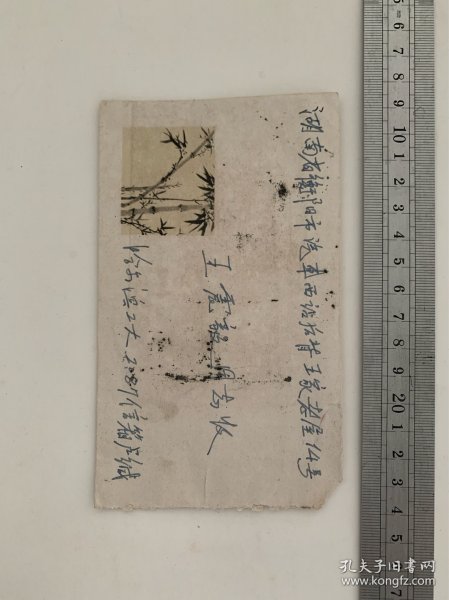 湖南省衡阳市汽车西站背王家老屋14号
王彦 同志收
哈尔滨工大2087信箱 缄
6 7 8 9 10 1 2 3 4 5 6 7 8 9 20 1 2 3 4 5
孔夫子旧书网
www.kongfz.com